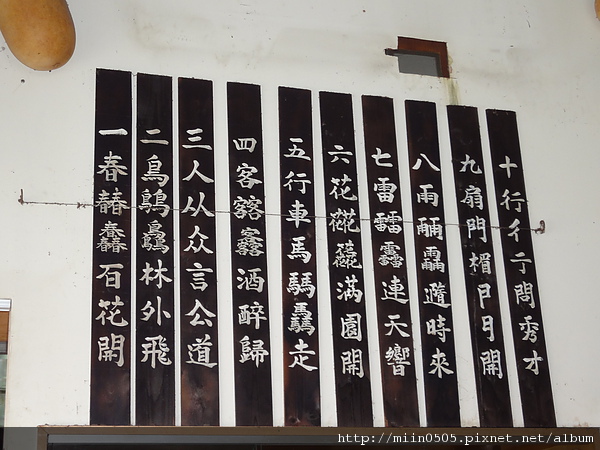 一春百花開
二鳥林外飛
三人从众言公道
四客酒醉歸
五行車馬驫走
六花滿園開
七雷靐連天響
八雨隨時來
九扇門楣月開
十行彳亍問秀才
http://miin0505.pixnet.net/album